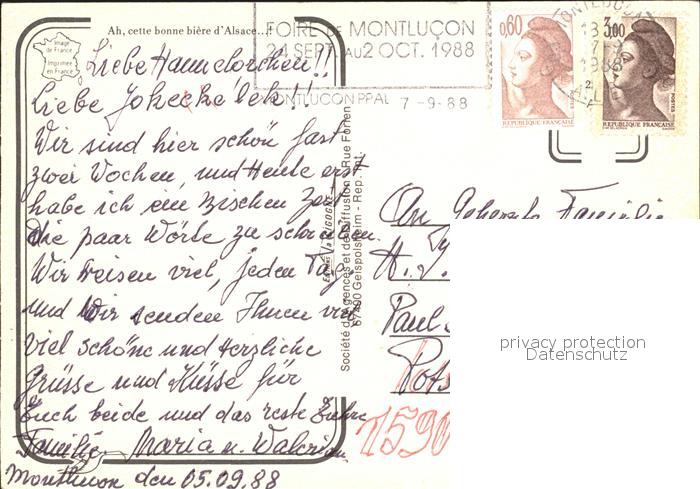 Ah, cette bonne bière d'Alsace...!
Image
de France
Imprimée
en France
FOIRE DE MONTLUÇON
24 SEPT. AU 2 OCT. 1988
MONTLUCON PPAL 7 -9 -88
0,60
REPUBLIQUE FRANÇAISE
POSTES
3,00
REPUBLIQUE FRANÇAISE
POSTES
1988
Liebe Hannelorchen!!
Liebe
Wir sind hier schön fast
zwei Wochen, und Heute erst
habe ich ein bischen Zeit
die paar Wörte zu schreiben.
Wir Reisen viel, jeden Tag.
und Wir senden Ihnen viel
viel schöne und Herzliche
Grüsse und Küsse für
Euch beide und das reste Eure
Familie Maria u. Walerian
Montlucon den 05.09.88
Société des Agences et de Diffusion
67400 Geispolsheim - Rep.
An Familie
H.
Paul
Pots
1590
privacy protection
Datenschutz